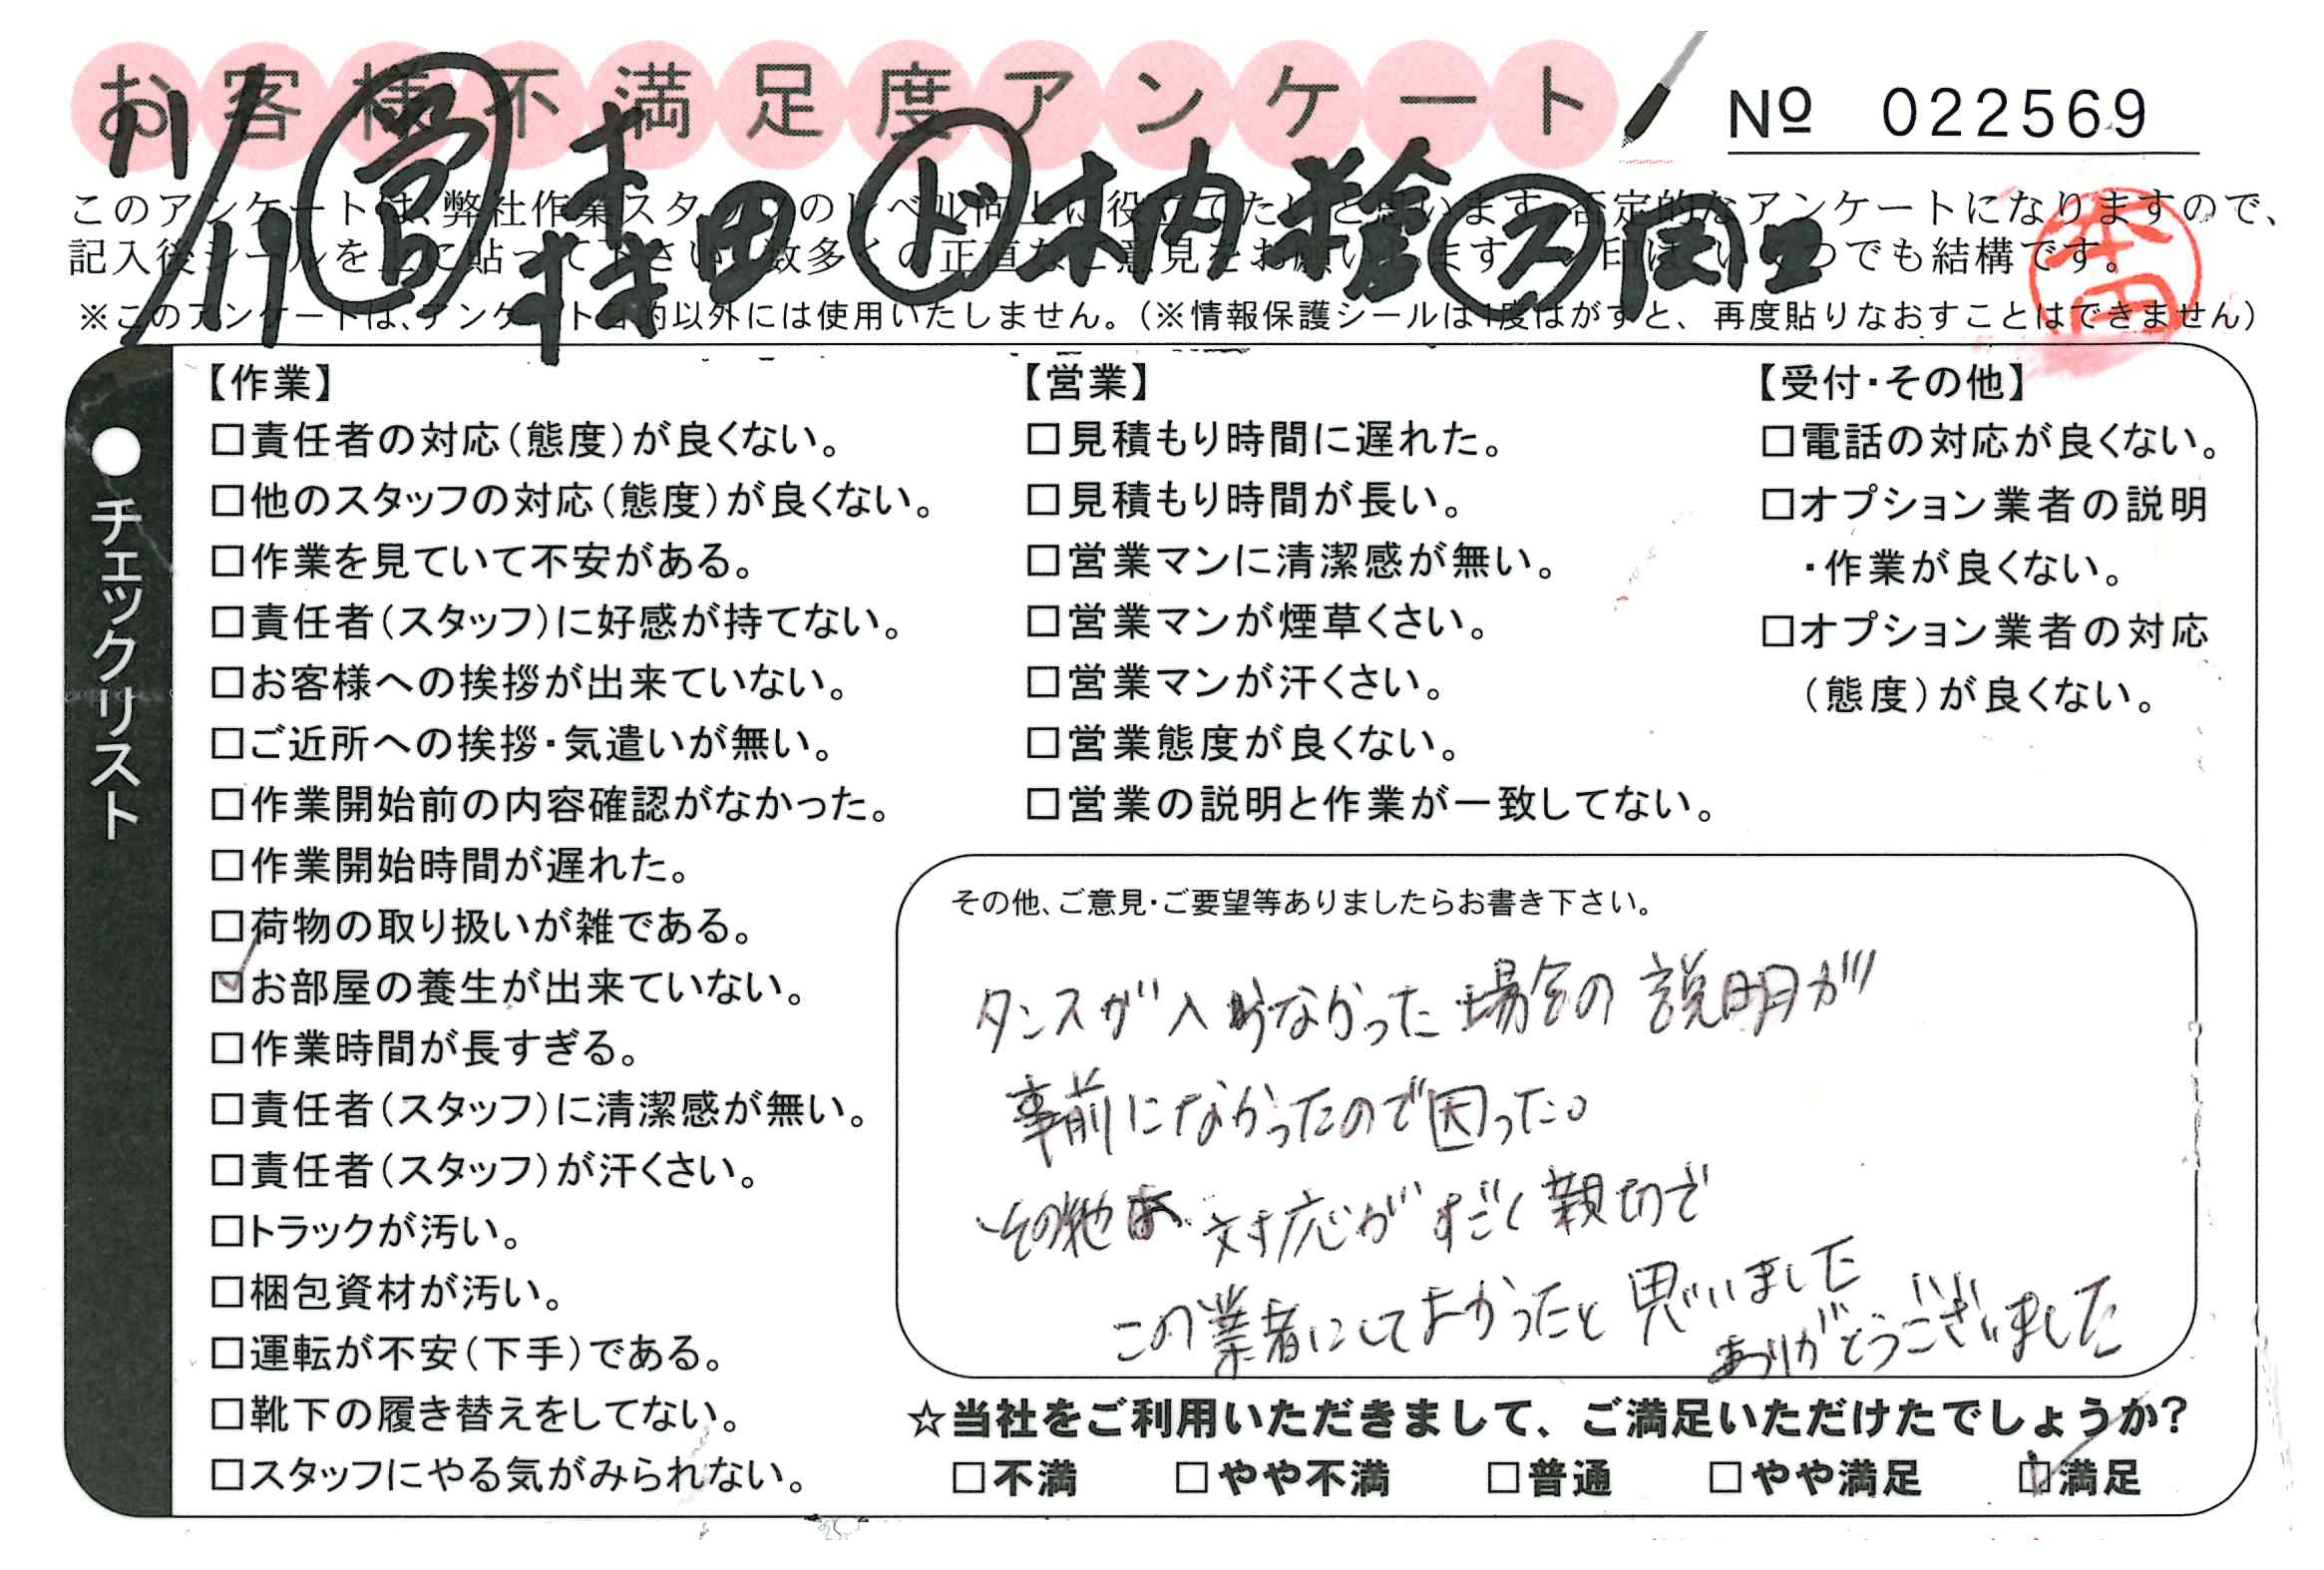 お客様不満足度アンケート
No 022569
11/19 営 持田 ド
このアンケートは、弊社作業スタッフのレベル向上に役立てたいと思います。否定的なアンケートになりますので、
※このアンケートは、アンケート目的以外には使用いたしません。(※情報保護シールは1度はがすと、再度貼りなおすことはできません)
●チェックリスト
【作業】
□責任者の対応(態度)が良くない。
□他のスタッフの対応(態度)が良くない。
□作業を見ていて不安がある。
□責任者(スタッフ)に好感が持てない。
□お客様への挨拶が出来ていない。
□ご近所への挨拶・気遣いが無い。
□作業開始前の内容確認がなかった。
□作業開始時間が遅れた。
□荷物の取り扱いが雑である。
☑お部屋の養生が出来ていない。
□作業時間が長すぎる。
□責任者(スタッフ)に清潔感が無い。
□責任者(スタッフ)が汗くさい。
□トラックが汚い。
□梱包資材が汚い。
□運転が不安(下手)である。
□靴下の履き替えをしてない。
□スタッフにやる気がみられない。
【営業】
□見積もり時間に遅れた。
□見積もり時間が長い。
□営業マンに清潔感が無い。
□営業マンが煙草くさい。
□営業マンが汗くさい。
□営業態度が良くない。
□営業の説明と作業が一致してない。
【受付・その他】
□電話の対応が良くない。
□オプション業者の説明
・作業が良くない。
□オプション業者の対応
(態度)が良くない。
その他、ご意見・ご要望等ありましたらお書き下さい。
タンスが入らなかった場合の説明が
事前になかったので困った。
その他は、対応がすごく親切で
この業者にしてよかったと思いました
ありがとうございました
☆当社をご利用いただきまして、ご満足いただけたでしょうか?
□不満 □やや不満 □普通 □やや満足 ☑満足